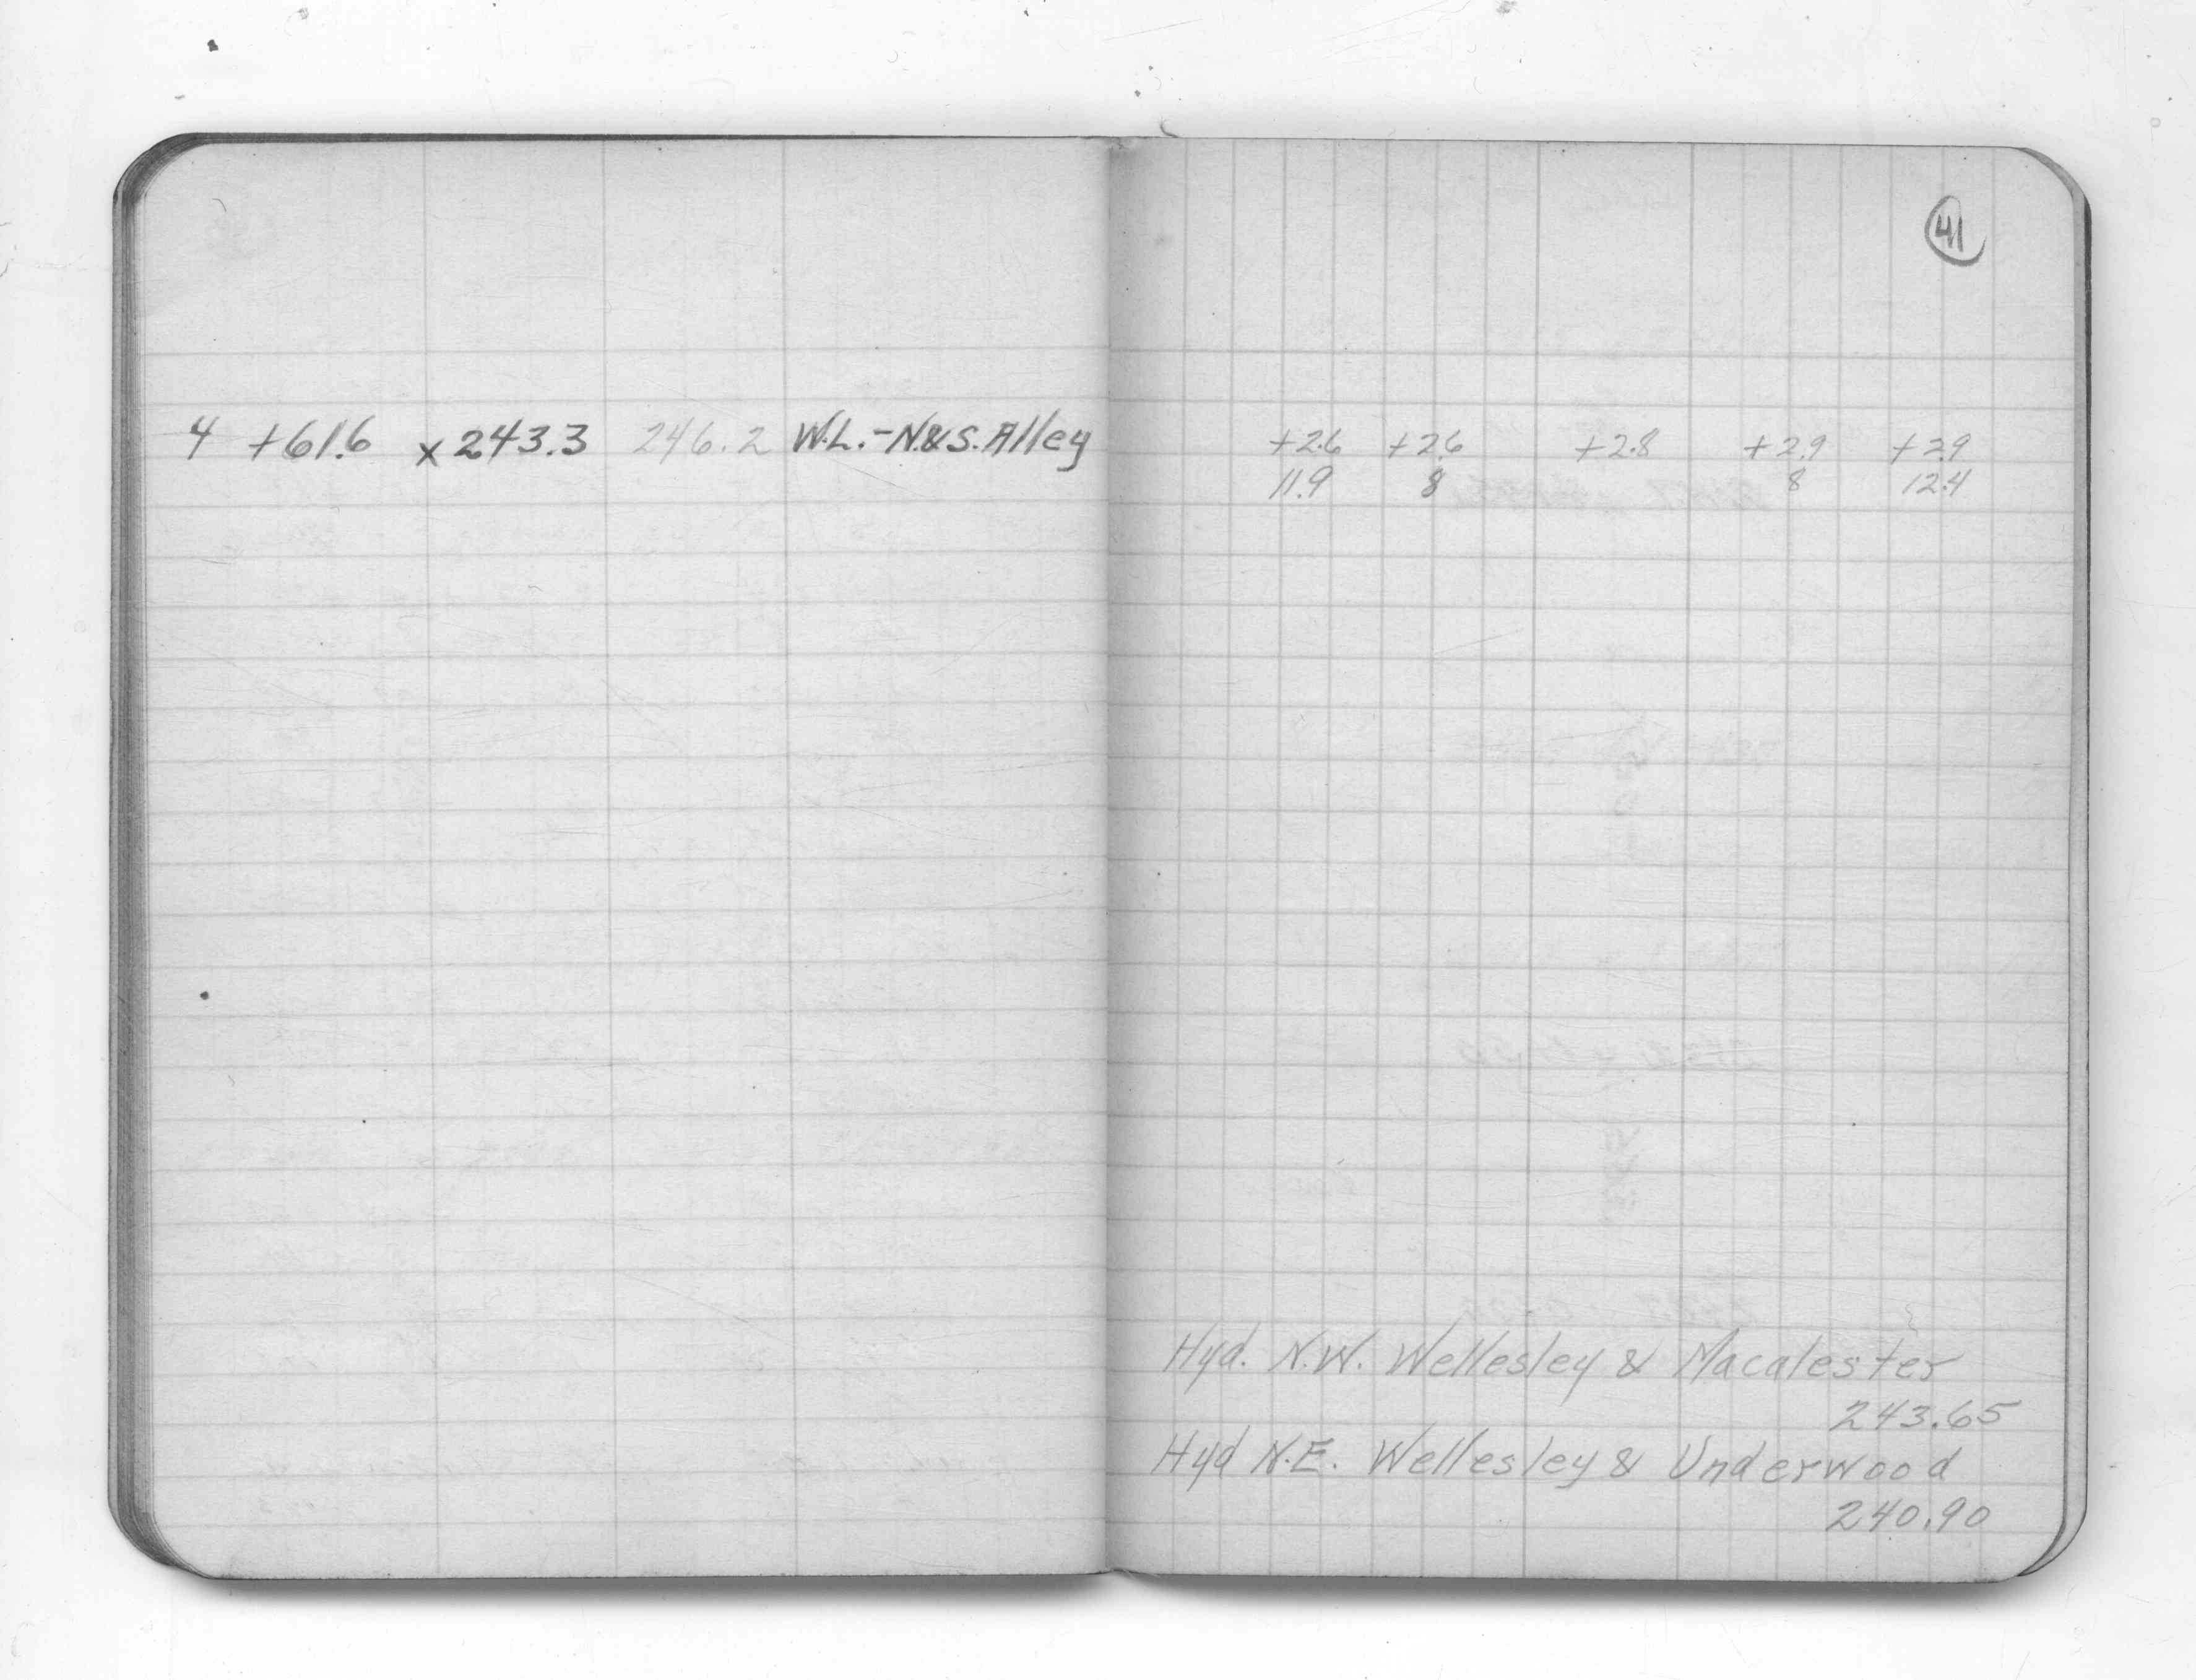 41
4 +61.6 x 243.3 246.2 W.L.-N.&S. Alley
+2.6 +2.6 +2.8 +2.9 +2.9
11.9 8 8 12.4
Hyd. N.W. Wellesley & Macalester
243.65
Hyd N.E. Wellesley & Underwood
240.90